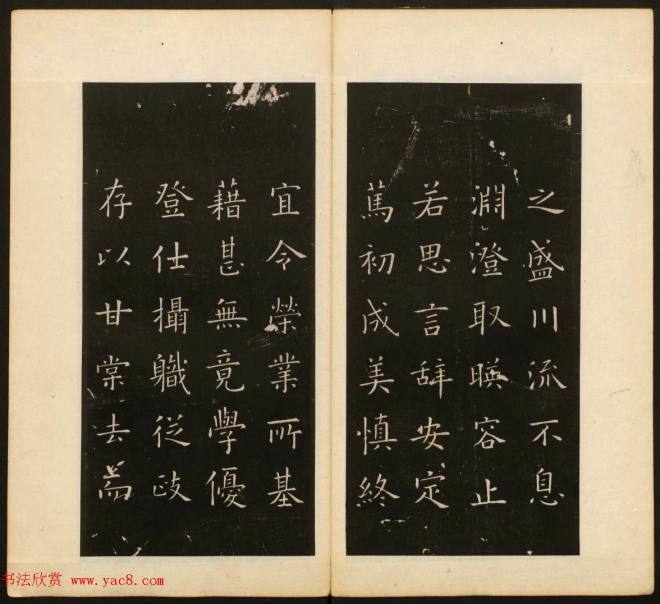 之盛川流不息
淵澄取暎容止
若思言辭安定
篤初成美慎終
宜令榮業所基
藉甚無竟學優
登仕攝軄從政
存以甘棠去而
书法欣赏 www.yac8.com